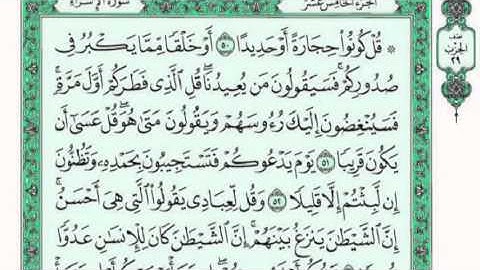 سورة الإسراء
الجزء الخامس عشر
نصف
الحزب
٢٩
۞ قُلْ كُونُوا۟ حِجَارَةً أَوْ حَدِيدًا ٥٠ أَوْ خَلْقًا مِّمَّا يَكْبُرُ فِى
صُدُورِكُمْ ۚ فَسَيَقُولُونَ مَن يُعِيدُنَا ۖ قُلِ ٱلَّذِى فَطَرَكُمْ أَوَّلَ مَرَّةٍ ۚ
فَسَيُنْغِضُونَ إِلَيْكَ رُءُوسَهُمْ وَيَقُولُونَ مَتَىٰ هُوَ ۖ قُلْ عَسَىٰٓ أَن
يَكُونَ قَرِيبًا ٥١ يَوْمَ يَدْعُوكُمْ فَتَسْتَجِيبُونَ بِحَمْدِهِۦ وَتَظُنُّونَ
إِن لَّبِثْتُمْ إِلَّا قَلِيلًا ٥٢ وَقُل لِّعِبَادِى يَقُولُوا۟ ٱلَّتِى هِىَ أَحْسَنُ ۚ
إِنَّ ٱلشَّيْطَٰنَ يَنزَغُ بَيْنَهُمْ ۚ إِنَّ ٱلشَّيْطَٰنَ كَانَ لِلْإِنسَٰنِ عَدُوًّا